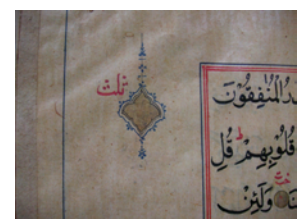 ثلث
ذَرُ الْمُنٰفِقُوْنَ
قُلُوْبِهِمْ ط قُلِ
وَلَئِنْ